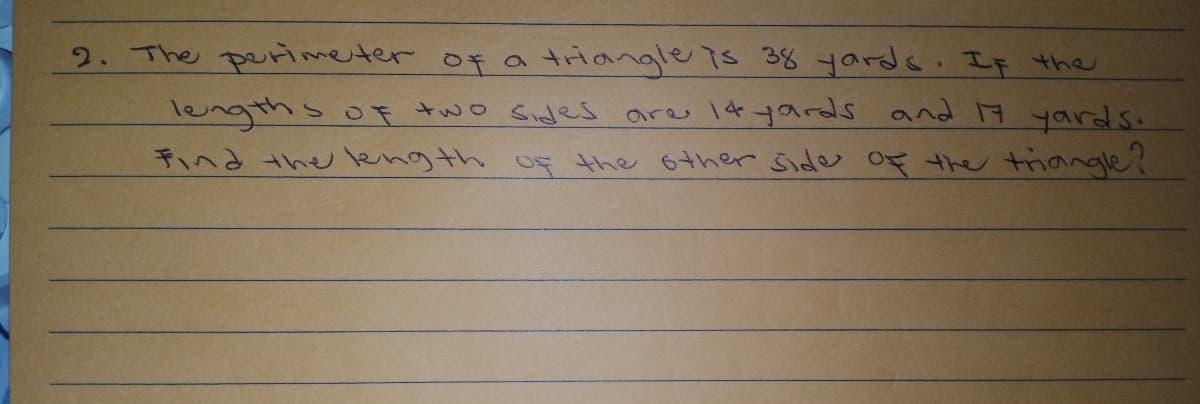 2. The perimeter of a triangle is 38 yards. If the
lengths of two sides are 14 yards and 17 yards.
Find the length of the other side of the triangle?